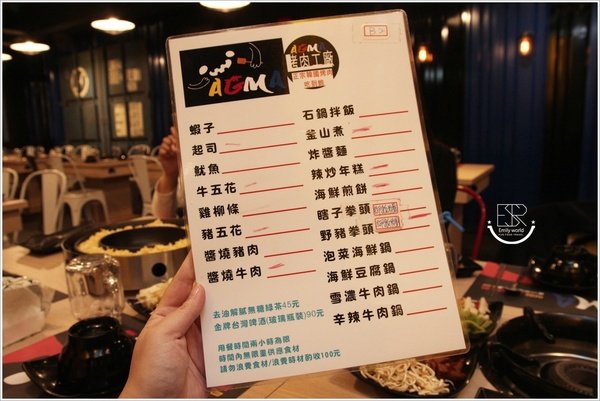 AGMA
AGMA
烤肉工廠
正宗韓國烤肉
吃到飽
蝦子
起司
魷魚
牛五花
雞柳條
豬五花
醬燒豬肉
醬燒牛肉
石鍋拌飯
釜山煮
炸醬麵
辣炒年糕
海鮮煎餅
瞎子拳頭
野豬拳頭
泡菜海鮮鍋
海鮮豆腐鍋
雪濃牛肉鍋
辛辣牛肉鍋
去油解膩無糖綠茶45元
金牌台灣啤酒(玻璃瓶裝)90元
用餐時間兩小時為限
時間內無限量供應食材
請勿浪費食材/浪費食材酌收100元
Emily world